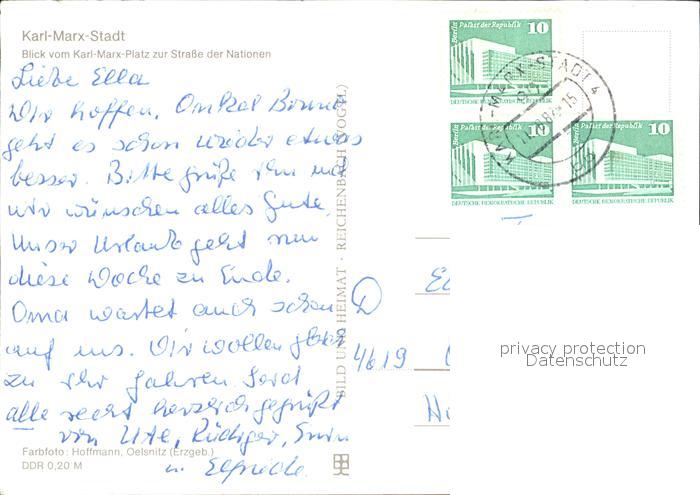 Karl-Marx-Stadt
Blick vom Karl-Marx-Platz zur Straße der Nationen
Liebe Ella
Wir hoffen, Onkel Bruno
geht es schon wieder etwas
besser. Bitte grüße ihn und
wir wünschen alles Gute.
Unser Urlaub geht nun
diese Woche zu Ende.
Oma wartet auch schon
auf uns. Wir wollen gleich
zu ihr fahren. Seid
alle recht herzlich gegrüßt
von Ute, Rüdiger,
u. Elfriede.
Farbfoto: Hoffmann, Oelsnitz (Erzgeb.)
DDR 0,20 M
BILD UND HEIMAT · REICHENBACH (VOGTL)
Berlin Palast der Republik 10
DEUTSCHE DEMOKRATISCHE REPUBLIK
Berlin Palast der Republik 10
DEUTSCHE DEMOKRATISCHE REPUBLIK
Berlin Palast der Republik 10
DEUTSCHE DEMOKRATISCHE REPUBLIK
KARL-MARX-STADT 4
D
4619
privacy protection
Datenschutz